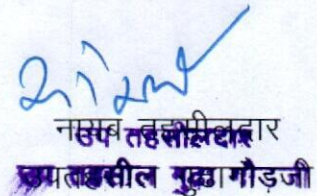 नायब तहसीलदार
उप तहसीलदार
उप तहसील गुढा गौड़जी